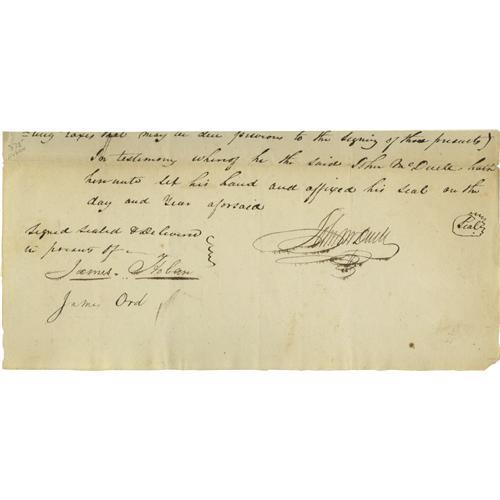 =ing taxes that may be due previous to the signing of these presents)
In testimony whereof he the said John McDuell hath
hereunto set his hand and affixed his seal on the
day and Year aforsaid
signed sealed & Delivered
in presents of
James Hoban
James Ord
John McDuell
Seal